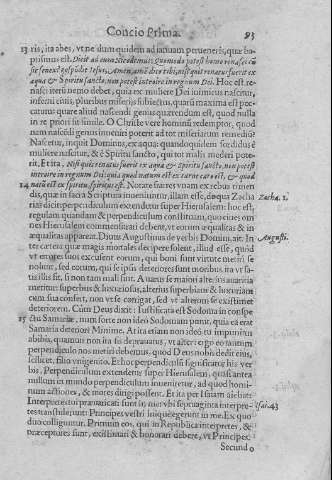 Concio Prima. 93
13 ris, ita abes, vt ne dum quidem ad ianuam perueneris, quæ ba-
ptismus est. Dicit ad eum Nicodemus: quomodo potest homo renasci cùm
sit senex? respōdit Iesus, Amen, amē dico tibi, nisi quis renatus fuerit ex
aqua & Spiritu sancto, non potest introire in regnum Dei. Hoc est re-
nasci iterū nemo debet, quia ex muliere Dei inimicus nascitur,
infernì ciuis, pluribus miserijs subiectus,
catutus quàm aliud nascendi genus quærendum est, quod nulla
in re priori sit simile. O Christe vere hominū redemptor, quod
nam nascēdi genus inuenìri poterit ad tot miseriarum remediū?
Nascetur, inquit Dominus, ex aqua: quandoquidem sordidus è
muliere nascitur, & è Spiritu sancto, qui tot malis mederi pote-
rit. Et ita, Nisi quis renatus fuerit ex aqua & Spiritu sancto non potest
introire in regnum Dei: quia quod natum est ex carne caro est, & quod
14 natū est ex spiritu spiritus est. Notate fratres vnam ex rebus timen
dis, quæ in sacra Scriptura inueniuntur, illam esse, de qua Zacha Zacha. 1.
rias dicit: perpendiculum extendetur super Hierusalem: hoc est,
regulam quandam & perpendiculum constituam, quo ciues om
nes Hierusalem commensurari debent, vt eorum æqualitas & in
æqualitas appareat. Diuus Augustinus de verbis Domini, ait: In Augusti.
ter cætera quæ magis mortales decipere solent, illud esse, quòd
vt errores suos excusent eorum, qui boni sunt virtute metiri se
nolunt, sed eorum, qui se ipsis deteriores sunt moribus, ita vt sa-
tis illis sit, si non tam mali sint. Auarus se maiori alterius auaritia
metitur: superbus & luxuriosus, alterius superbiam & luxuriam
cum sua confert, non vt se corrigat, sed vt alterum se existimet
deteriorem. Cùm Deus dixit: Iustificata est Sodoma in conspe
15 ctu Samariæ, num forte non ideò Sodomam punit, quia ea erat
Samaria deterior? Minimè. At ita etiam non ideò tu impunitus
abibis, quamuis non ita sis deprauatus, vt alter: ergo eo tantum
perpendiculo nos metiri debemus, quod Deus nobis dedit eius,
scilicet, filio vnigenito. Et hoc perpendiculū significatur his ver
bis, Perpendiculum extendetur super Hierusalem, quasi antea
nullum in mundo perpendiculum inueniretur, ad quod homi-
num actiones, & mores dirigi possent. Et ita per Isaiam ait:
Interpretes tui præuaricati sunt in me: vbi septuaginta interpre- Isai. 43
tes transtulerunt: Principes vestri inique egerunt in me. Ex quo
duo colliguntur. Primum eos, qui in Republica interpretes, &
præceptores sunt, existimari & honorari debere, vt Principes:
Secundo